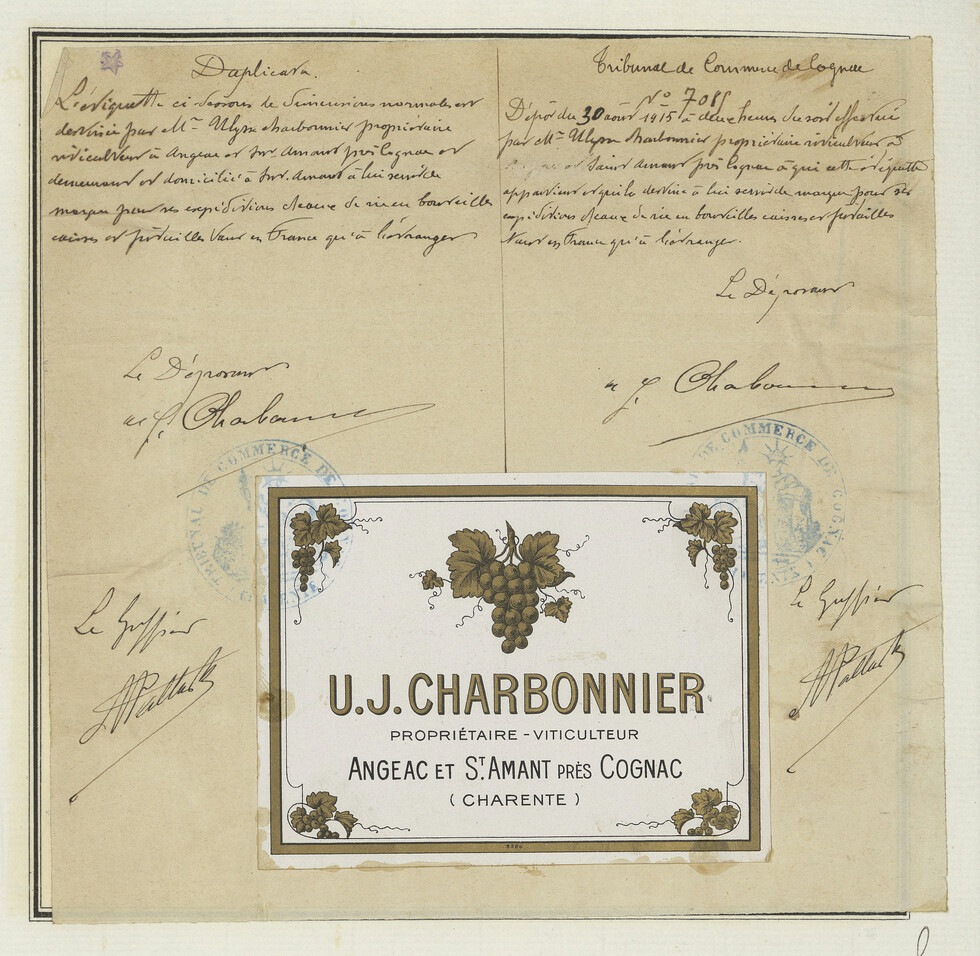 Duplicata.
L'étiquette ci-dessous de dimensions normales est
destinée par Mr Ulysse Charbonnier propriétaire
viticulteur à Angeac et St Amant près Cognac et
demeurant et domicilié à St Amant à lui servir de
marque pour ses expéditions d'eaux de vie en bouteilles
caisses et futailles tant en France qu'à l'étranger
Le Déposant
Le Greffier
Tribunal de Commerce de Cognac
No 7085
Dépôt du 30 août 1915 à deux heures du soir effectué
par Mr Ulysse Charbonnier propriétaire viticulteur à
Angeac et Saint Amant près Cognac à qui cette étiquette
appartient et qui la destine à lui servir de marque pour ses
expéditions d'eaux de vie en bouteilles caisses et futailles
tant en France qu'à l'étranger.
Le Déposant
Le Greffier
TRIBUNAL DE COMMERCE DE
DE COMMERCE DE COGNAC
U.J. CHARBONNIER
PROPRIÉTAIRE - VITICULTEUR
ANGEAC ET ST. AMANT PRÈS COGNAC
( CHARENTE )